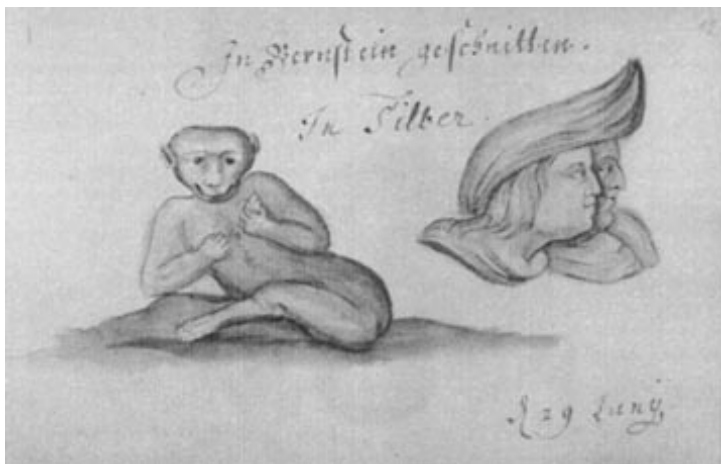 In Bernstein geschnitten.
In Silber.
29 Junij.